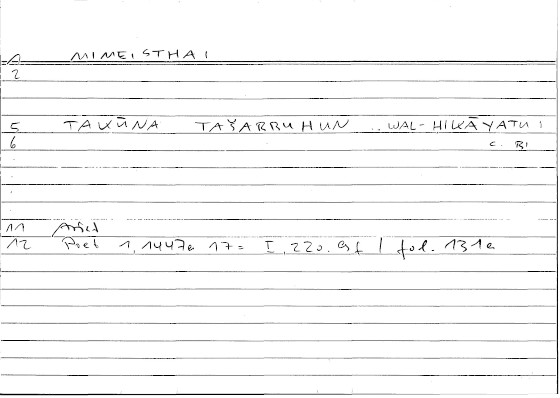 1 MIMEISTHAI
2
5 TAKŪNA TAŠABBUHUN .. WAL-ḤIKĀYATU :
6 C. BI
11 Aristot
12 Poet 1, 1447a 17 = I, 220. 9f / fol. 131a